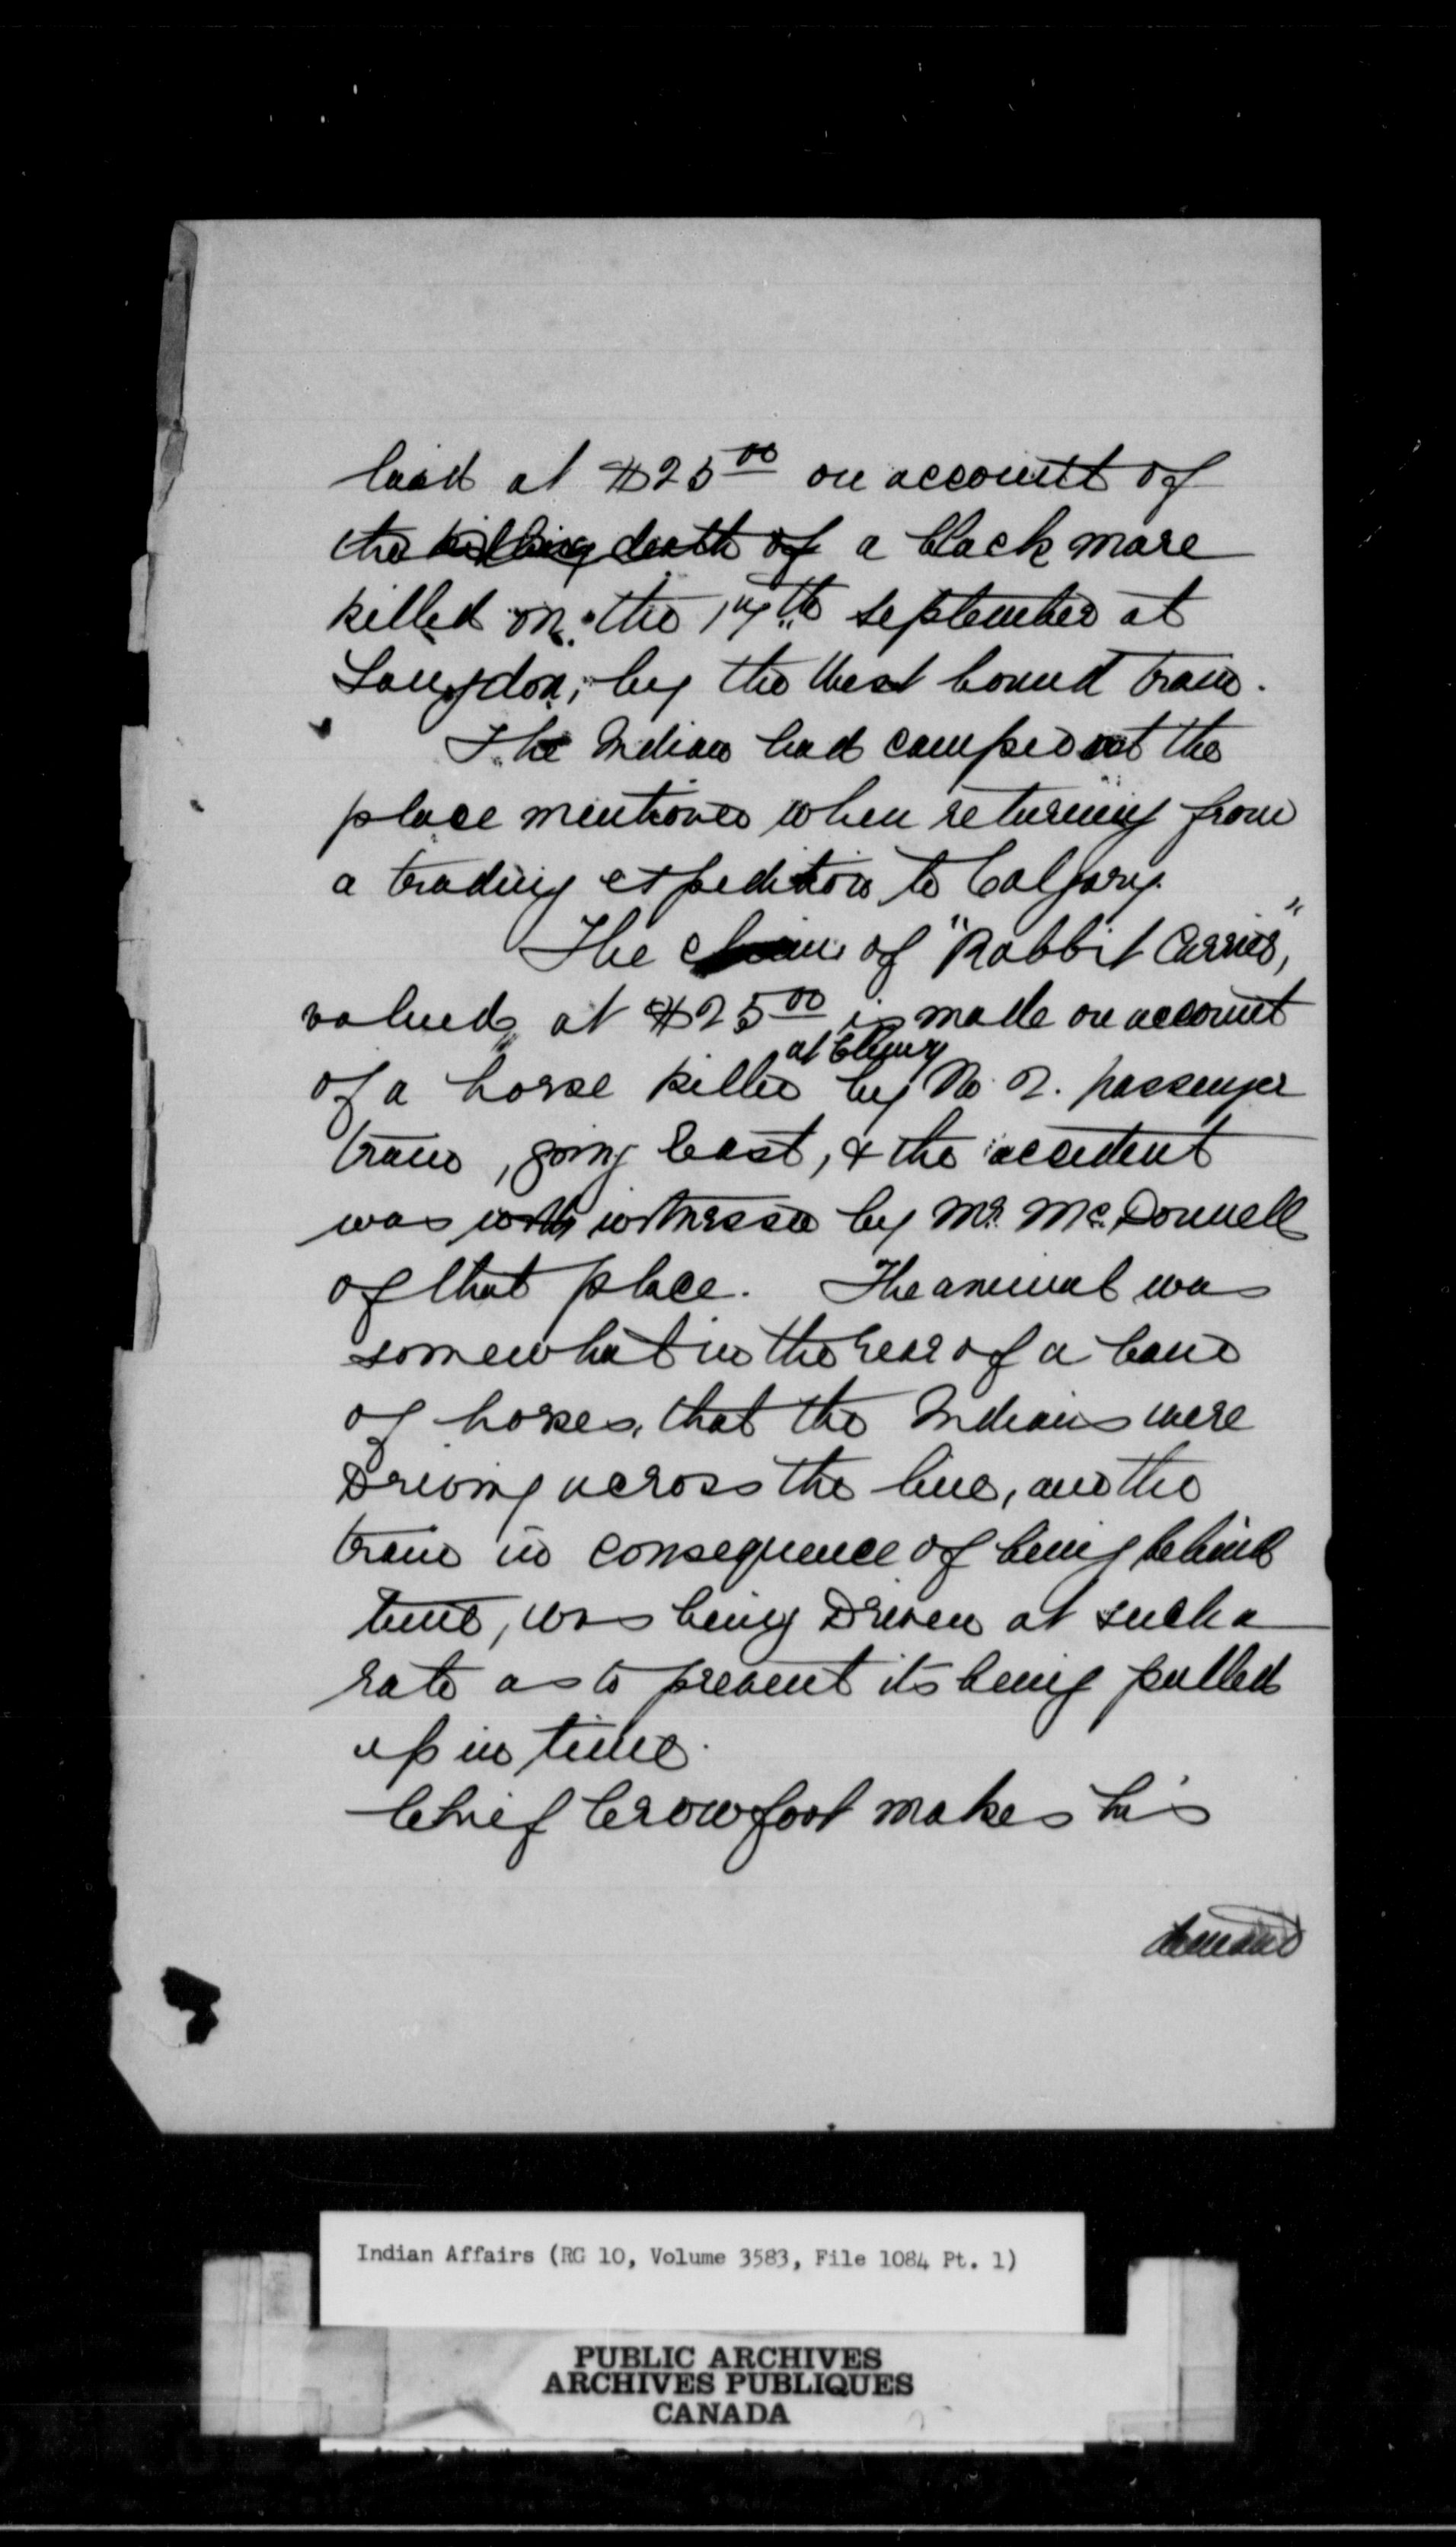 laid at $25.00 on account of
the killing death of a black mare
killed on the 17th September at
Langdon, by the West bound train.
The Indian had camped at the
place mentioned when returning from
a trading expedition to Calgary.
The claim of "Rabbit Carrier,"
valued at $25.00 is made on account
at Cluny
of a horse killed by No 2. passenger
train, going East, & the accident
was with witnessed by Mr. McDonnell
of that place. The animal was
somewhat in the rear of a band
of horses, that the Indians were
Driving across the line, and the
train in consequence of being behind
time, was being Driven at such a
rate as to prevent its being pulled
up in time.
Chief Crowfoot makes his
demand
Indian Affairs (RG 10, Volume 3583, File 1084 Pt. 1)
PUBLIC ARCHIVES
ARCHIVES PUBLIQUES
CANADA